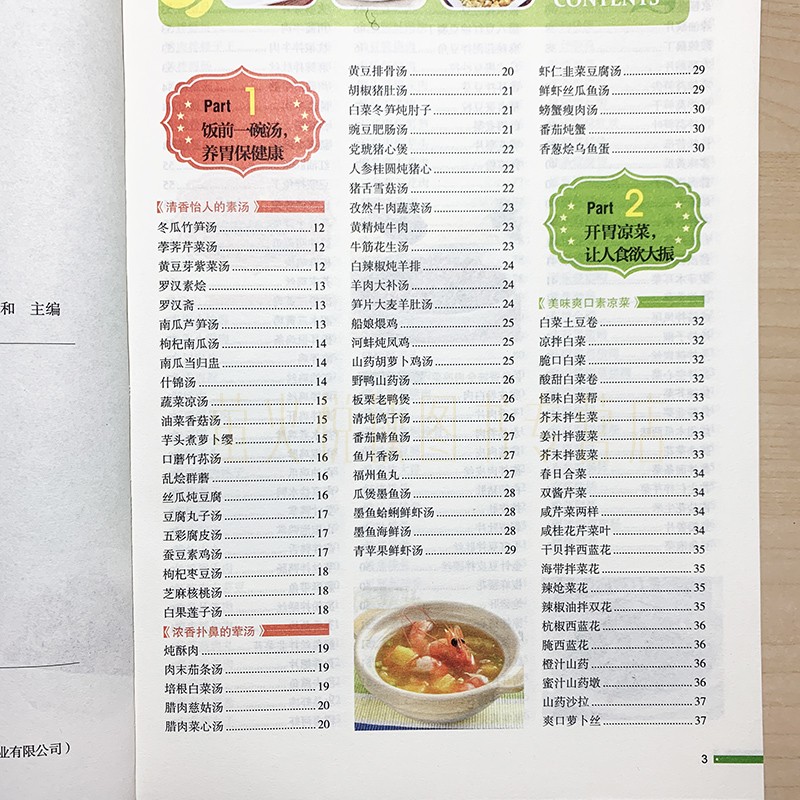 CONTENTS
和 主编
业有限公司）
Part 1
饭前一碗汤，
养胃保健康
清香怡人的素汤
冬瓜竹笋汤 12
荸荠芹菜汤 12
黄豆芽紫菜汤 12
罗汉素烩 13
罗汉斋 13
南瓜芦笋汤 13
枸杞南瓜汤 14
南瓜当归盅 14
什锦汤 14
蔬菜凉汤 15
油菜香菇汤 15
芋头煮萝卜缨 15
口蘑竹荪汤 16
乱烩群蘑 16
丝瓜炖豆腐 16
豆腐丸子汤 17
五彩腐皮汤 17
蚕豆素鸡汤 17
枸杞枣豆汤 18
芝麻核桃汤 18
白果莲子汤 18
浓香扑鼻的荤汤
炖酥肉 19
肉末茄条汤 19
培根白菜汤 19
腊肉慈姑汤 20
腊肉菜心汤 20
黄豆排骨汤 20
胡椒猪肚汤 21
白菜冬笋炖肘子 21
豌豆肥肠汤 21
党琥猪心煲 22
人参桂圆炖猪心 22
猪舌雪菇汤 22
孜然牛肉蔬菜汤 23
黄精炖牛肉 23
牛筋花生汤 23
白辣椒炖羊排 24
羊肉大补汤 24
笋片大麦羊肚汤 24
船娘煨鸡 25
河蚌炖凤鸡 25
山药胡萝卜鸡汤 25
野鸭山药汤 26
板栗老鸭煲 26
清炖鸽子汤 26
番茄鳝鱼汤 27
鱼片香汤 27
福州鱼丸 27
瓜煲墨鱼汤 28
墨鱼蛤蜊鲜虾汤 28
墨鱼海鲜汤 28
青苹果鲜虾汤 29
虾仁韭菜豆腐汤 29
鲜虾丝瓜鱼汤 29
螃蟹瘦肉汤 30
番茄炖蟹 30
香葱烩乌鱼蛋 30
Part 2
开胃凉菜，
让人食欲大振
美味爽口素凉菜
白菜土豆卷 32
凉拌白菜 32
脆口白菜 32
酸甜白菜卷 32
怪味白菜帮 33
芥末拌生菜 33
姜汁拌菠菜 33
芥末拌菠菜 33
春日合菜 34
双酱芹菜 34
咸芹菜两样 34
咸桂花芹菜叶 34
干贝拌西蓝花 35
海带拌菜花 35
辣炝菜花 35
辣椒油拌双花 35
杭椒西蓝花 36
腌西蓝花 36
橙汁山药 36
蜜汁山药墩 36
山药沙拉 37
爽口萝卜丝 37
3